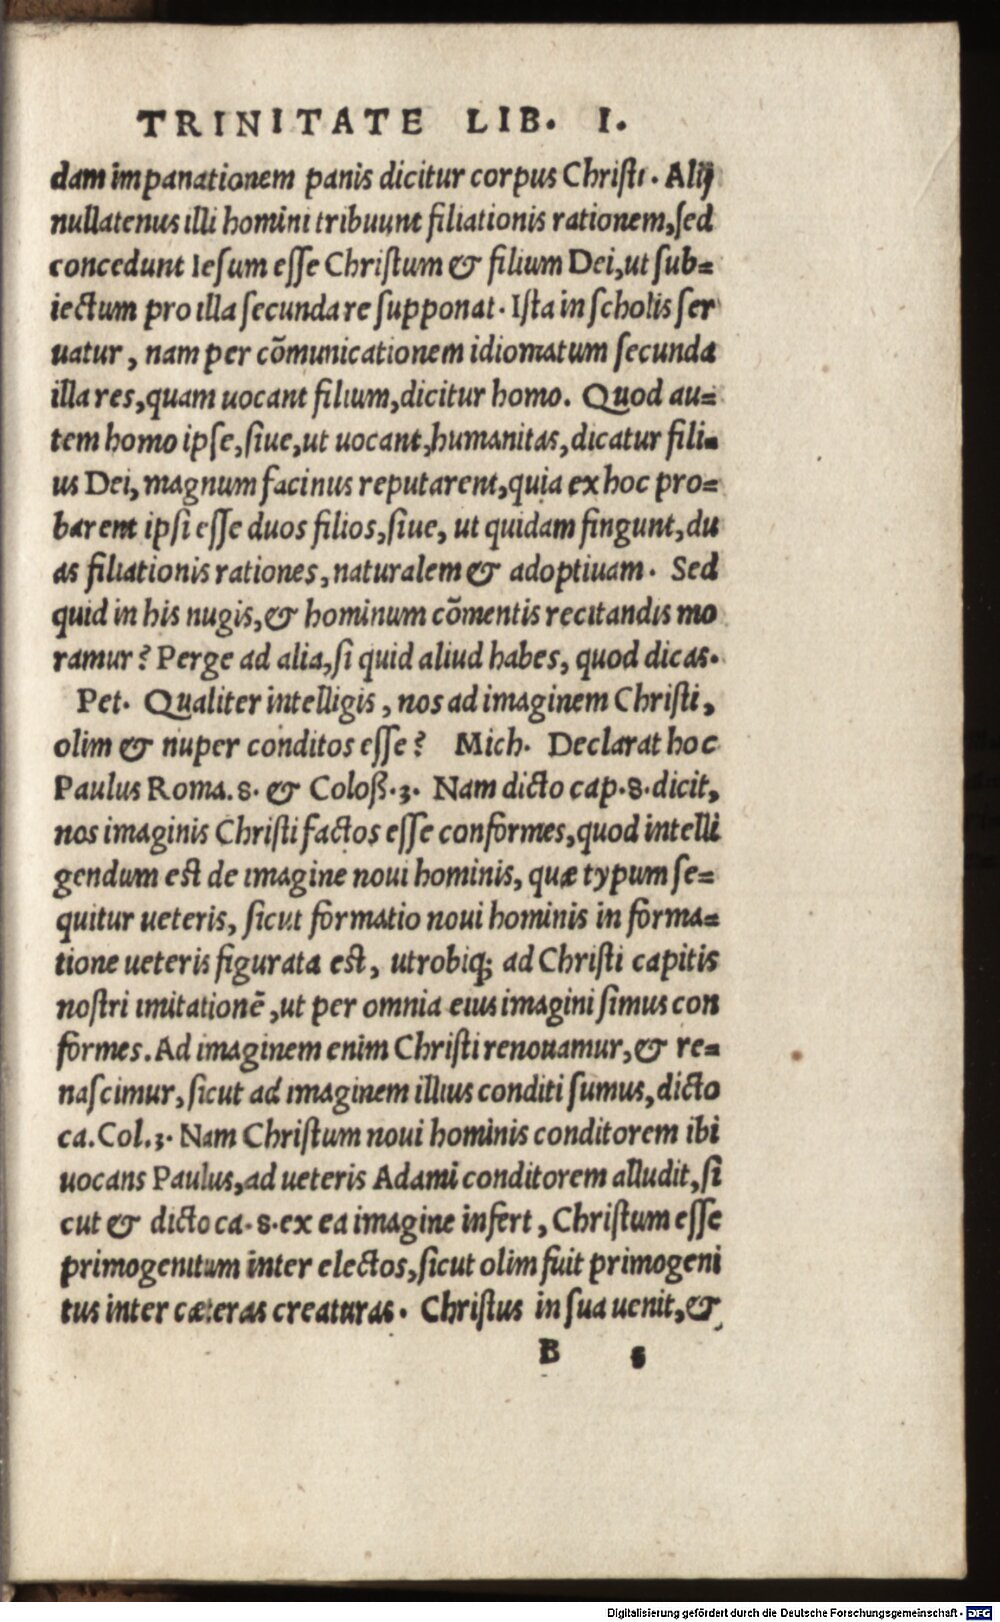 TRINITATE LIB. I.
dam impanationem panis dicitur corpus Christi. Alij
nullatenus illi homini tribuunt filiationis rationem, sed
concedunt Iesum esse Christum & filium Dei, ut sub=
iectum pro illa secunda re supponat. Ista in scholis ser
uatur, nam per cōmunicationem idiomatum secunda
illa res, quam uocant filium, dicitur homo. Quod au=
tem homo ipse, siue, ut uocant, humanitas, dicatur fili=
us Dei, magnum facinus reputarent, quia ex hoc pro=
barent ipsi esse duos filios, siue, ut quidam fingunt, du
as filiationis rationes, naturalem & adoptiuam. Sed
quid in his nugis, & hominum cōmentis recitandis mo
ramur? Perge ad alia, si quid aliud habes, quod dicas.
Pet. Qualiter intelligis, nos ad imaginem Christi,
olim & nuper conditos esse? Mich. Declarat hoc
Paulus Roma. 8. & Coloß. 3. Nam dicto cap. 8. dicit,
nos imaginis Christi factos esse conformes, quod intelli
gendum est de imagine noui hominis, quæ typum se=
quitur ueteris, sicut formatio noui hominis in forma=
tione ueteris figurata est, utrobiq; ad Christi capitis
nostri imitationē, ut per omnia eius imagini simus con
formes. Ad imaginem enim Christi renouamur, & re=
nascimur, sicut ad imaginem illius conditi sumus, dicto
ca. Col. 3. Nam Christum noui hominis conditorem ibi
uocans Paulus, ad ueteris Adami conditorem alludit, si
cut & dicto ca. 8. ex ea imagine infert, Christum esse
primogenitum inter electos, sicut olim fuit primogeni
tus inter cæteras creaturas. Christus in sua uenit, &
B 5
Digitalisierung gefördert durch die Deutsche Forschungsgemeinschaft - DFG